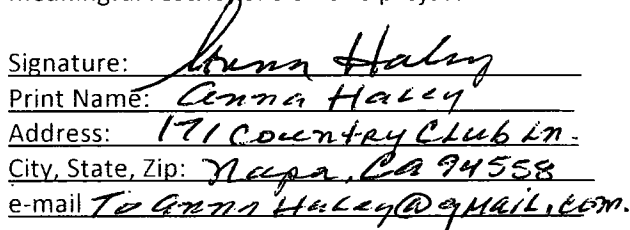 Signature: Anna Haley
Print Name: Anna Haley
Address: 171 Country Club Ln.
City, State, Zip: Napa, CA 94558
e-mail To Anna Haley@gmail.com.